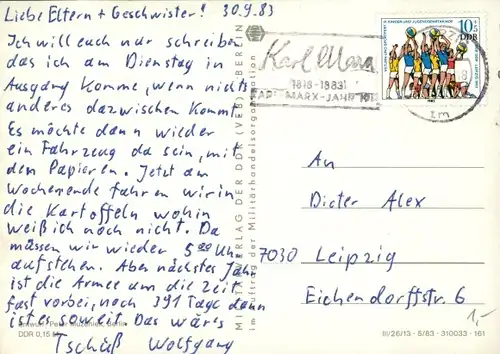 Liebe Eltern + Geschwister! 30.9.83
Ich will euch nur schreiben
das ich am Dienstag in
Ausgang komme, wenn nichts
anderes dazwischen kommt
Es möchte dann wieder
ein Fahrzeug da sein, mit
den Papieren. Jetzt am
Wochenende fahren wir in
die Kartoffeln wohin
weiß ich noch nicht. Da
müssen wir wieder 5 00 Uhr
aufstehen. Aber nächstes Jahr
ist die Armee um die Zeit
fast vorbei, noch 391 Tage dann
ist es soweit. Das wär's
Tschüß Wolfgang
Berlin
DDR 0,15
MILITÄRVERLAG DER DDR (VEB) BERLIN
im Auftrag der Militärhandelsorganisation
Karl Marx
1818-1883
KARL-MARX-JAHR
10+5
DDR
An
Dieter Alex
7030 Leipzig
Eichendorffstr. 6
1,-
III/26/13 - 5/83 - 310033 - 161